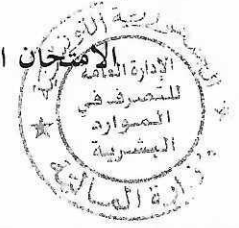 الامتحان ا
الإدارة العامة
للتصرف في
الموارد
البشرية
وزارة المالية